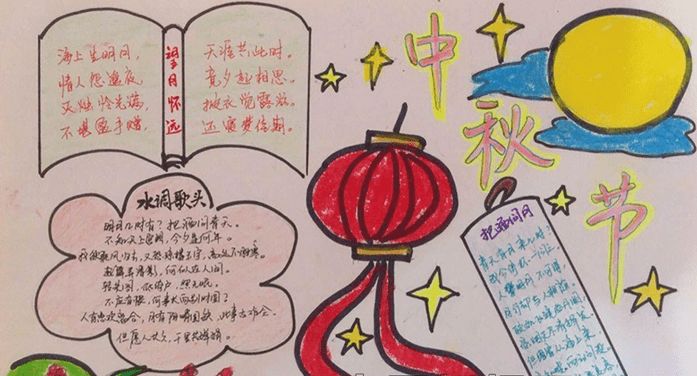 中秋节
望月怀远
海上生明月,
天涯共此时。
情人怨遥夜,
竟夕起相思。
灭烛怜光满,
披衣觉露滋。
不堪盈手赠,
还寝梦佳期。
水调歌头
明月几时有?把酒问青天。
不知天上宫阙,今夕是何年。
我欲乘风归去,又恐琼楼玉宇,高处不胜寒。
起舞弄清影,何似在人间。
转朱阁,低绮户,照无眠。
不应有恨,何事长向别时圆?
人有悲欢离合,月有阴晴圆缺,此事古难全。
但愿人长久,千里共婵娟。
把酒问月
青天有月来几时?
我今停杯一问之。
人攀明月不可得,
月行却与人相随。